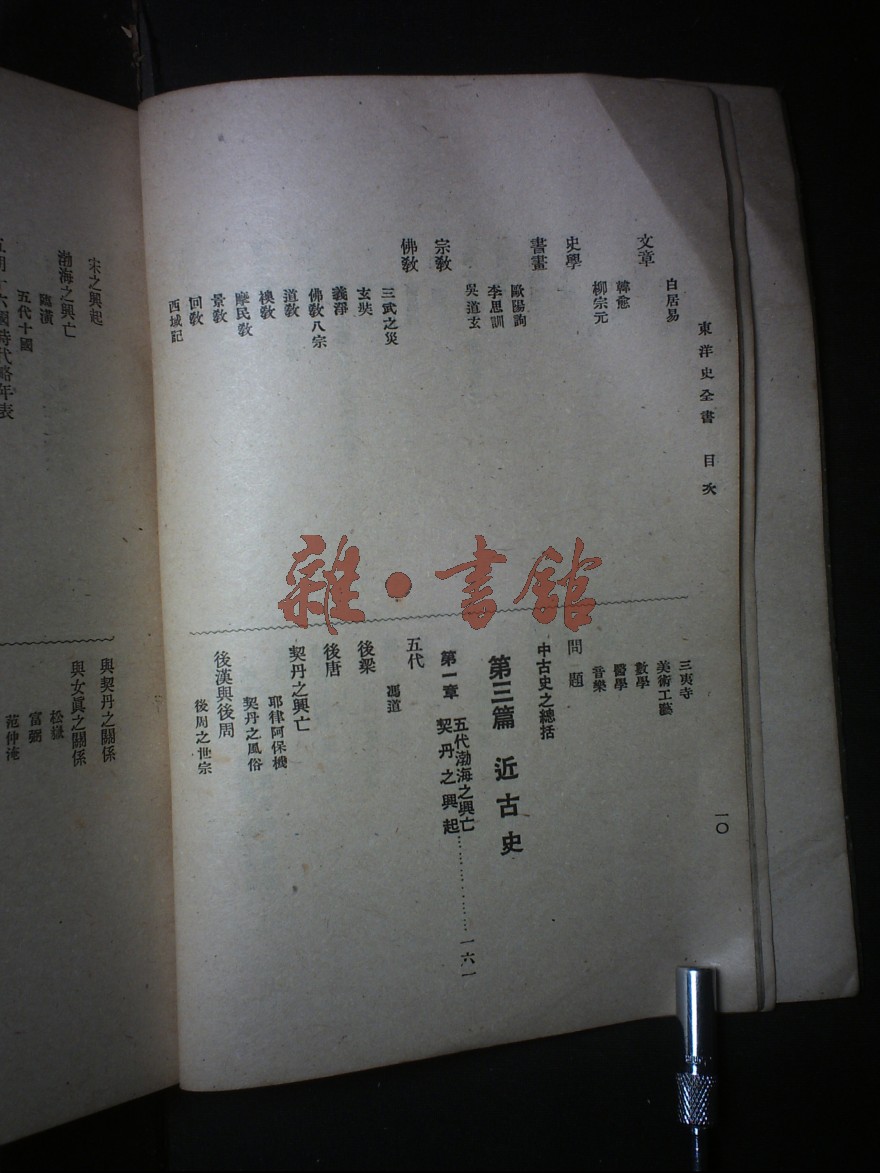 東洋史全書 目次
一〇
白居易
文章
韓愈
柳宗元
史學
書畫
歐陽詢
李思訓
吳道玄
宗敎
佛敎
三武之災
玄奘
義淨
佛敎八宗
道敎
祆敎
摩民敎
景敎
回敎
西域記
三夷寺
美術工藝
數學
醫學
音樂
問題
中古史之總括
第三篇 近古史
第一章 五代渤海之興亡
契丹之興起……………一六一
五代
馮道
後梁
後唐
契丹之興亡
耶律阿保機
契丹之風俗
後漢與後周
後周之世宗
宋之興起
渤海之興亡
臨潢
五代十國
十六國時代略年表
與契丹之關係
與女眞之關係
富弼
范仲淹
雜·書館